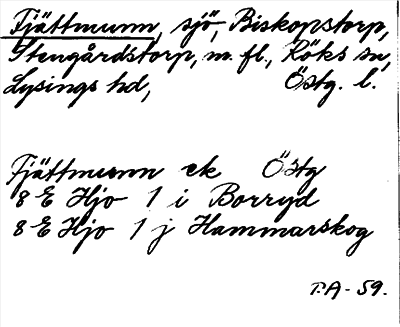 Tjättmunn, sjö, Biskopstorp,
Stengårdstorp, m. fl., Röks sn,
Lysings hd, Östg. l.
Tjättmunn ek Östg
8 E Hjo 1 i Borryd
8 E Hjo 1 j Hammarskog
P.A - 59.